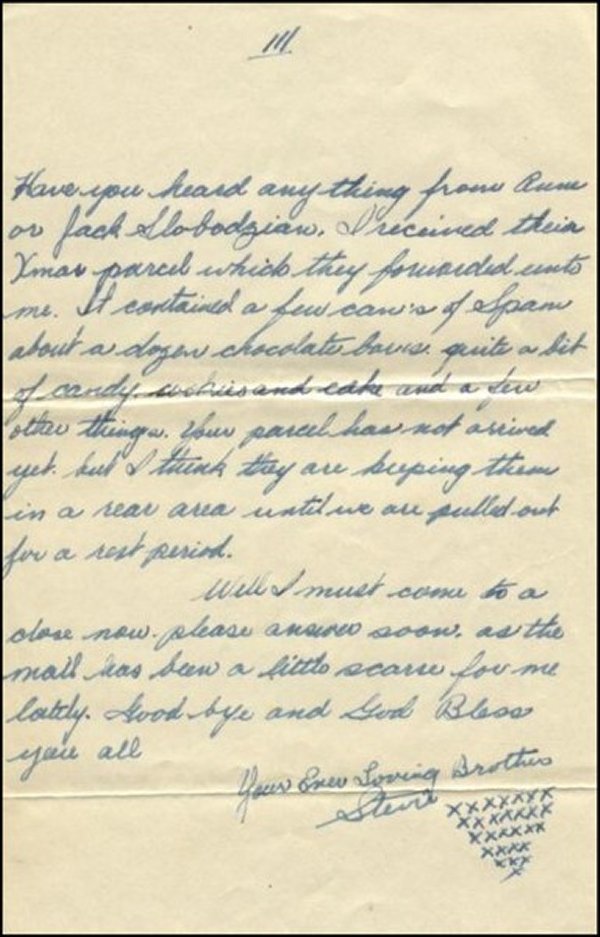 III
Have you heard any thing from Anne
or Jack Slobodzian. I received their
Xmas parcel which they forwarded unto
me. It contained a few can's of Spam
about a dozen chocolate bars. quite a bit
of candy cookies and cake and a few
other things. Your parcel has not arrived
yet. but I think they are keeping them
in a rear area until we are pulled out
for a rest period.
Well I must come to a
close now. please answer soon. as the
mail has been a little scarse for me
lately. Good bye and God Bless
you all
Your Ever Loving Brother
Steve
xxxxxxx
xxxxxx
xxxxx
xxxx
xxx
x